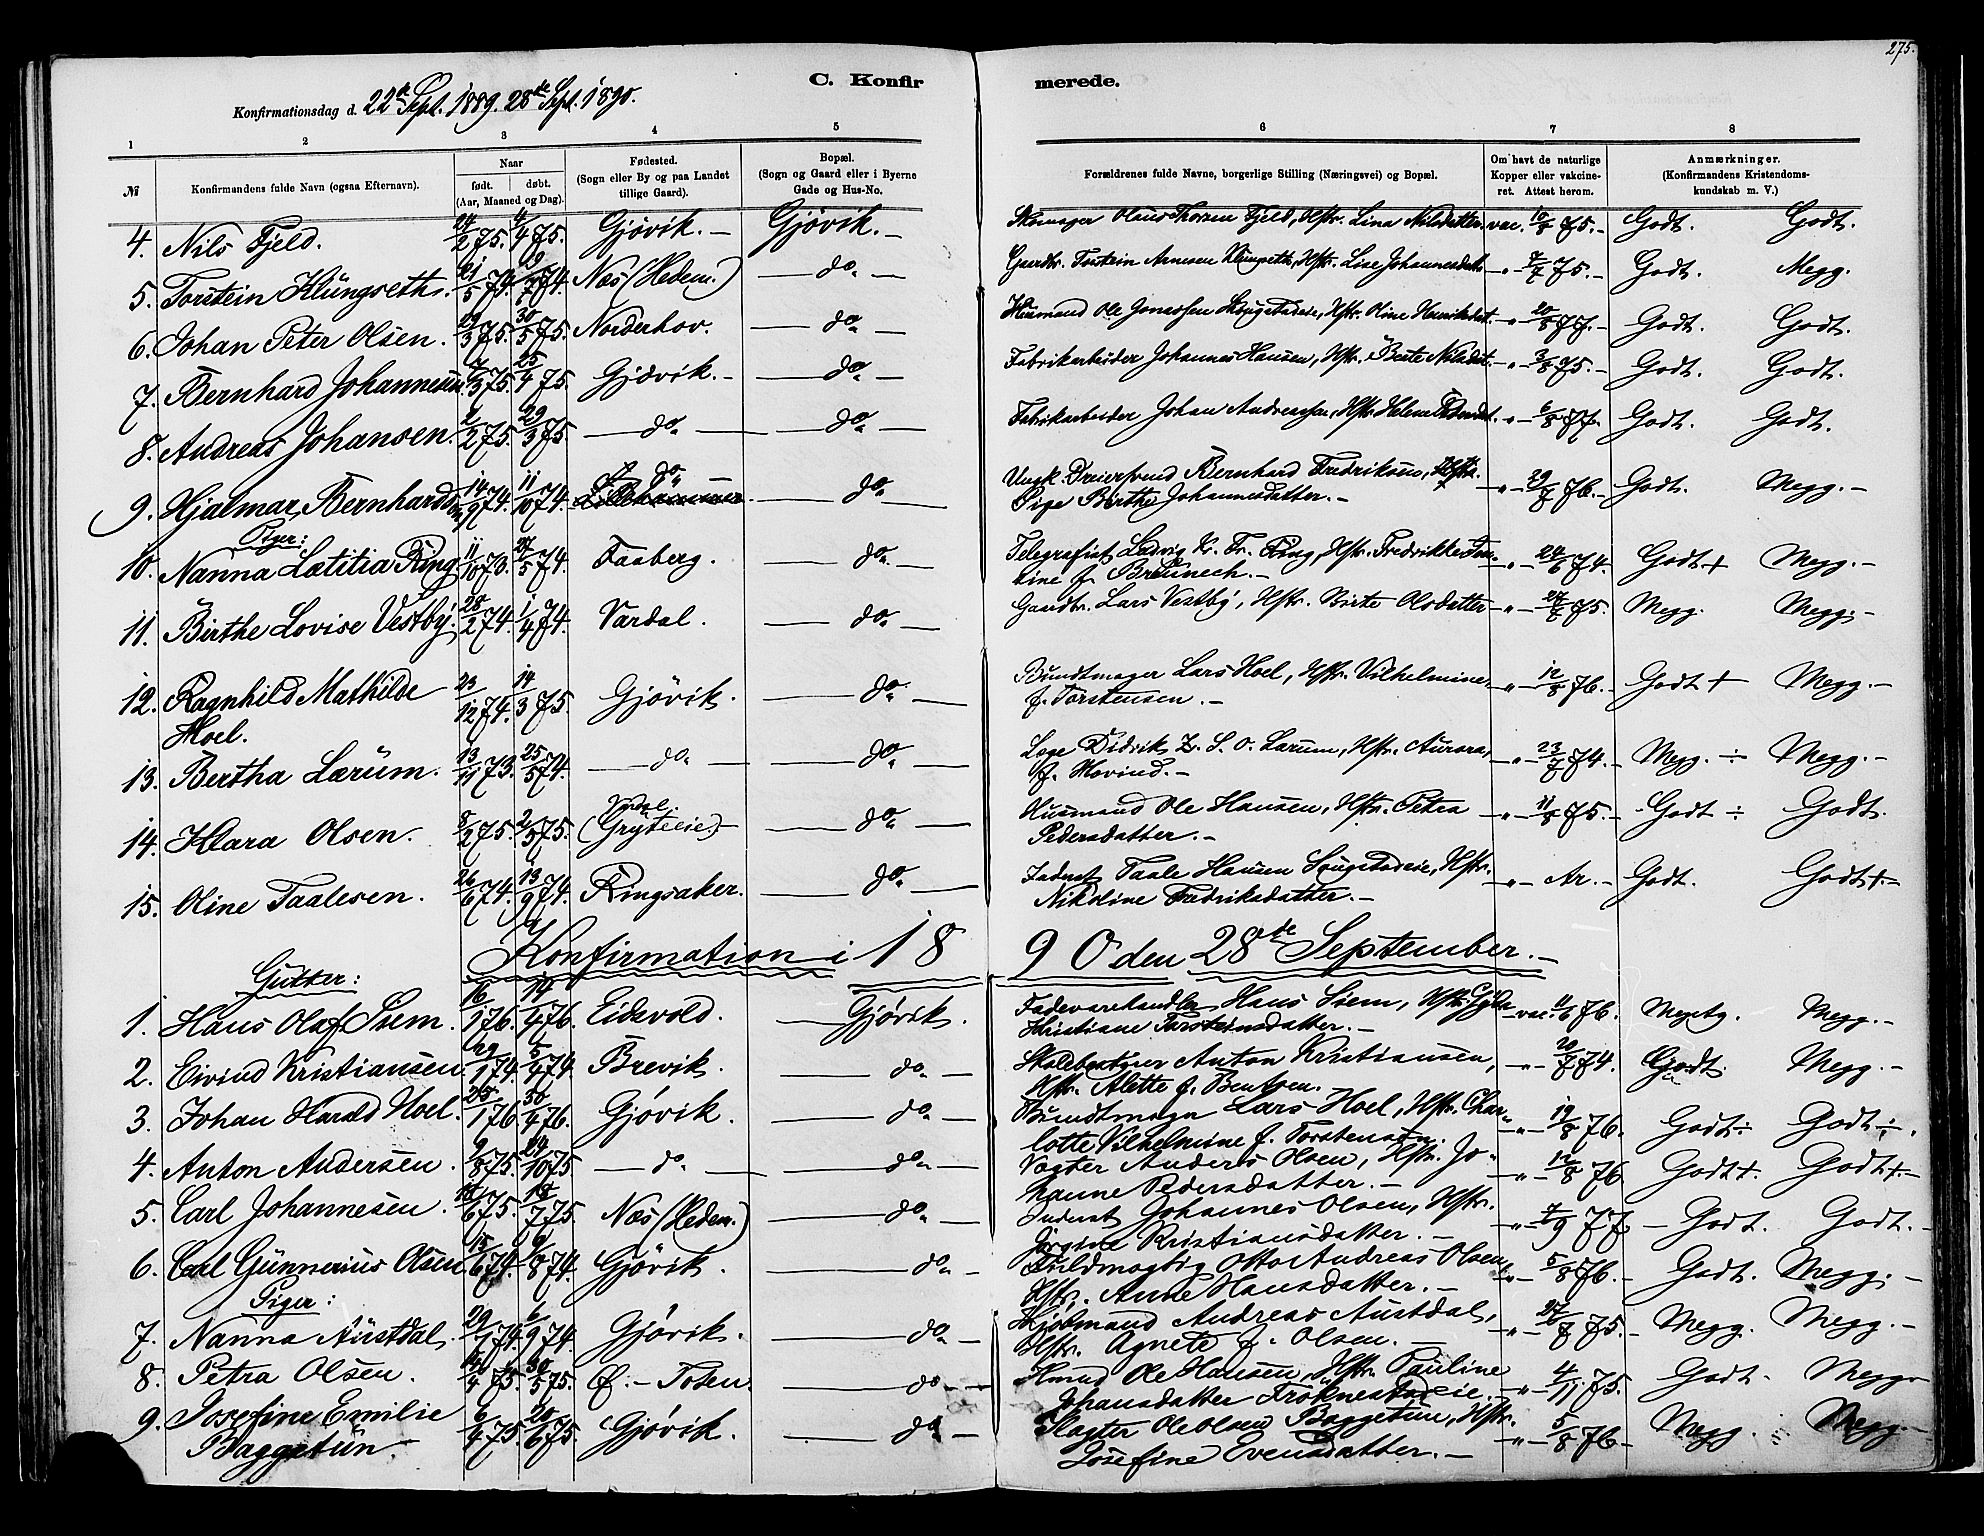 275.
C. Konfir merede.
Konfirmationsdag d. 22de Sept. 1889. 28de Sept. 1890.
1 2 3 4 5 6 7 8
№
Konfirmandens fulde Navn (ogsaa Efternavn).
Naar
født. døbt.
(Aar, Maaned og Dag).
Fødested.
(Sogn eller By og paa Landet
tillige Gaard).
Bopæl.
(Sogn og Gaard eller i Byerne
Gade og Hus-No.
Forældrenes fulde Navne, borgerlige Stilling (Næringsvei) og Bopæl.
Om havt de naturlige
Kopper eller vakcine-
ret. Attest herom.
Anmærkninger.
(Konfirmandens Kristendoms-
kundskab m. V.)
4. Nils Fjeld. 24/2 75. 4/4 75. Gjövik. – Gjövik. – Skomager Olaus Thorsen Fjeld, Hstr. Lina Nilsdatter. vac. 10/8 75. – Godt. Godt.
5. Torstein Klüngseth. 21/5 74. 29/7 74. Næs (Hedem.) — do — Gaardbr. Torstein Arnesen Klüngseth, Hstr. Lise Johannesdatt. -"- 7/7 75. – Godt. Megg.
6. Johan Peter Olsen. 19/3 75. 30/5 75. Norderhov. — do — Husmand Ole Hstr. Oline Henriksdat. -"- 20/8 77. – Godt. Godt.
7. Bernhard Johannesen 7/3 75. 25/4 75. Gjøvik. – — do — Fabrikarbeider Johannes Hansen, Hstr. Beate Nilsdat. -"- 3/8 75. – Godt. Godt.
8. Andreas Johansen. 2/2 75. 29/3 75. — do — — do — Fabrikarbeider Johan Andreassen, Hstr. Helene -"- 6/8 77. Godt. Godt.
9. Hjalmar Bernhardsen 14/9 74. 11/10 74. do Lillehammer. — do — Ungk. Dreiersvend Bernhard Fredriksen,
Pige Birthe Johannesdatter. – -"- 29/7 76. – Godt. Megg. –
Piger:
10. Nanna Lætitia Ring 11/10 73. 27/5 74. Faaberg. — do — Telegrafist Ludvig K. Fr. Ring, Hstr. Fredrikke Em-
line f. Breünech. – -"- 24/6 74. Godt + Megg. –
11. Birthe Lovise Vestby. 28/2 74. 1/4 74. Vardal. — do — Gaardbr. Lars Vestby, Hstr. Birte Olsdatter -"- 27/7 75. Megg. Megg. –
12. Ragnhild Mathilde
Hoel. 23/12 74. 14/3 75. Gjövik. — do — Bundtmager Lars Hoel, Hstr. Vilhelmine,
f. Torstensen. – -"- 12/8 76. – Godt + Megg. –
13. Bertha Lærüm. 13/11 73. 25/5 74. — do — — do — Læge Didrik Z. S. O. Lærum, Hstr. Aurora,
f. Hovind. – -"- 23/7 74. – Megg. ÷ Megg. –
14. Klara Olsen. 8/2 75. 2/5 75. Vardal.
(Gryteeie) – — do — Husmand Ole Hansen, Hstr. Petra
Pedersdatter. – -"- 11/8 75. – Godt ÷ Godt.
15. Oline Taalesen. 26/6 74. 13/9 74. Ringsaker. — do — Inderst Taale Hansen Hstr.
Nikoline Fredriksdatter. – -"- Ar. – Godt. Godt + –
Konfirmation i 18 90 den 28de September. –
Gutter:
1. Hans Olaf Siem. 16/1 76. 17/4 76. Eidsvold. Gjøvik. Fadevarehandler Hans Siem, Hstr.
Kristiane Torsteinsdatter. – vac. 11/6 76. Megg. Megg. –
2. Eivind Kristiansen 29/1 74. 5/4 74 Brevik. — do — Skolebestyrer Anton Kristiansen,
Hstr. Alette f. Bentsen. -"- 20/7 74. Godt. Megg. –
3. Johan Harald Hoel. 25/1 76 30/4 76. Gjøvik. — do — Bundtmager Lars Hoel, Hstr. Char-
lotte Vilhelmine f. Torstensen. -"- 19/8 76. Godt ÷ Godt ÷.
4. Anton Andersen. 9/8 75. 24/10 75 — do — — do — Vogter Anders Olsen, Hstr. Jo-
hanne Pedersdatter. – -"- 12/8 76 Godt +. Godt + –
5. Carl Johannesen. 18/6 75. 18/7 75. Næs (Hedem.) — do — Inderst Johannes Olsen, Hstr.
Jørgine Kristiansdatter. – -"- 7/9 77 – Godt. Godt. –
6. Carl Günnerius Olsen 15/6 74. 9/8 74. Gjøvik. — do — Fuldmægtig Otto Andreas Olsen,
Hstr. Anne Hansdatter. – -"- 5/8 76. – Godt. Megg. –
Piger:
7. Nanna Aüstdal. 29/1 74. 6/9 74. Gjøvik. — do — Andreas Austdal,
Hstr. Agnete f. Olsen. – -"- 27/7 75. – Megg. Megg. –
8. Petra Olsen. 14/4 75. 30/5 75. Ø. – Toten. — do – – Hmnd Ole Hansen, Hstr. Pauline
Johansdatter -"- 4/11 75. Godt. Megg –
9. Josefine Emilie
Baggetün 6/4 75. 20/6 75. Gjøvik. — do — Slagter Ole Olsen Baggetun, Hstr.
Josefine Evensdatter. – -"- 5/8 76 – Megg. Megg. –